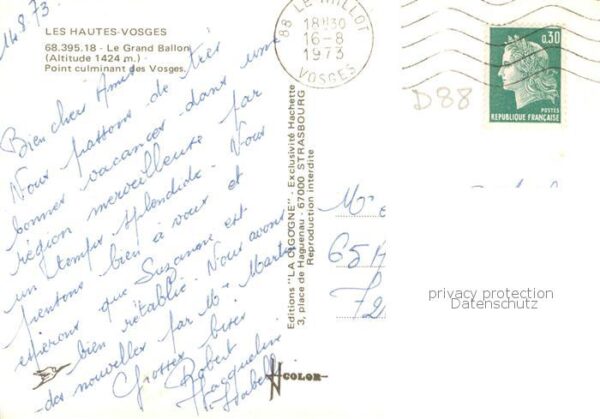 14.8.73
LES HAUTES-VOSGES
68.395.18 - Le Grand Ballon
(Altitude 1424 m.)
Point culminant des Vosges.
Bien chers Amis
Nous passons de très
bonnes vacances dans une
région merveilleuse par
un temps splendide. Nous
pensons bien à vous et
espérons que Suzanne est
bien rétablie. Nous avons
des nouvelles par Mme Martin
Grosses bises
Robert
Jacqueline
Isabelle
Editions "LA CIGOGNE" - Exclusivité Hachette
3, place de Haguenau - 67000 STRASBOURG
Reproduction interdite
COLOR
88 LE THILLOT
18H30
16-8
1973
VOSGES
D88
0,30
POSTES
REPUBLIQUE FRANÇAISE
privacy protection
Datenschutz